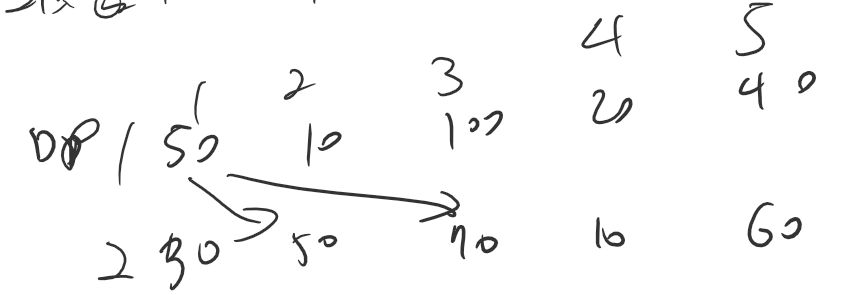 1 2 3 4 5
DP 1 50 10 100 20 40
2 30 50 70 10 60